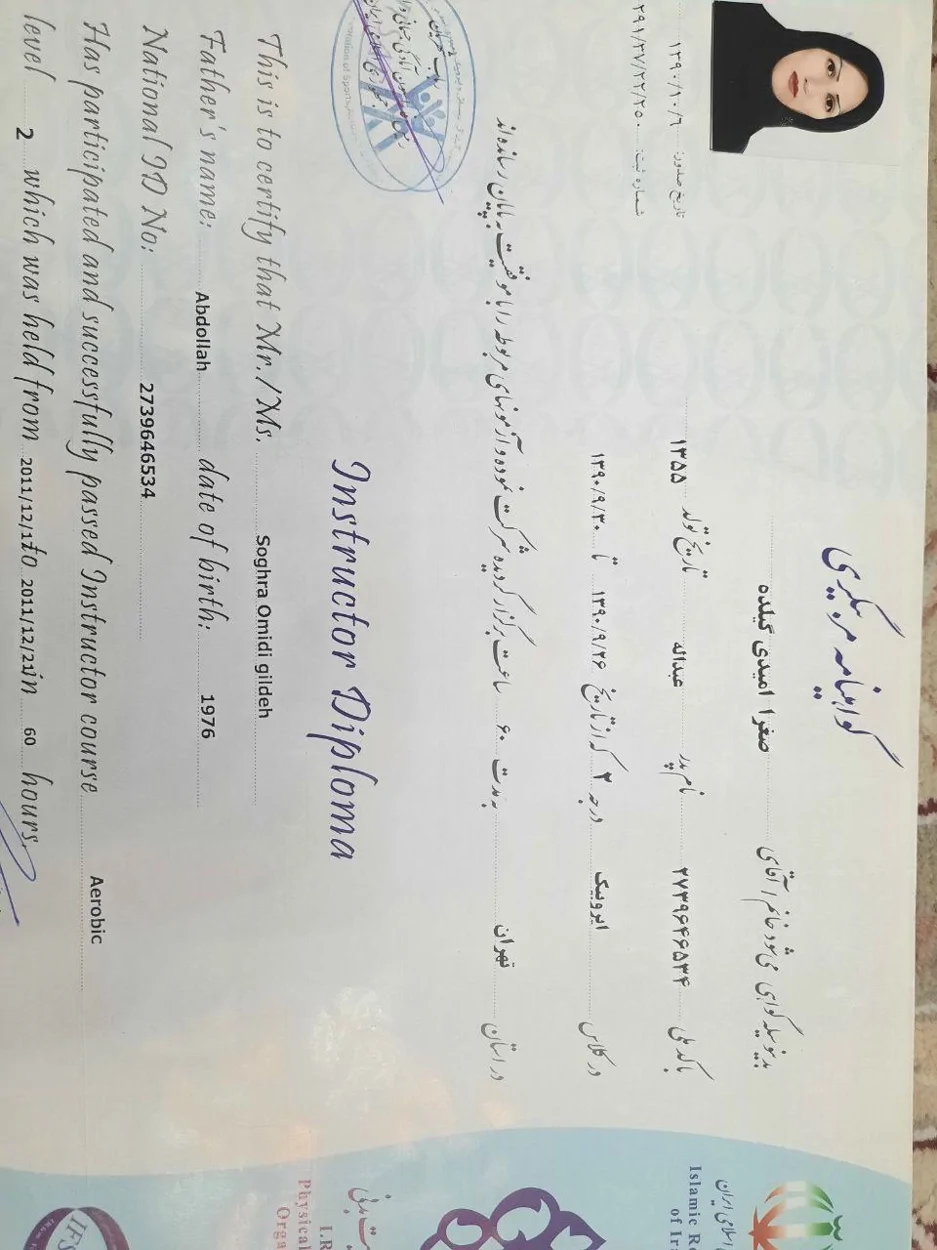 اسلامی ایران
Islamic Re
of Ira
I.R
Physical
Orga
IFS
گواهینامه مربیگری
بدینوسیله گواهی می‌شود خانم / آقای صغرا امیدی گیلده
با کد ملی ۲۷۳۹۶۴۶۵۳۴ نام پدر عبداله تاریخ تولد ۱۳۵۵
در کلاس ایروبیک درجه ۲ که از تاریخ ۱۳۹۰/۹/۲۶ تا ۱۳۹۰/۹/۳۰
در استان تهران به مدت ۶۰ ساعت برگزار گردیده شرکت نموده و آزمونهای مربوطه را با موفقیت به پایان رسانده‌اند
تاریخ صدور: ۱۳۹۰/۱۰/۶
شماره ثبت: ۲۹۱/۳۷/۲۲/۲۵۰
Instructor Diploma
This is to certify that Mr./Ms. Soghra Omidi gildeh
Father's name: Abdollah date of birth: 1976
National ID No: 2739646534
Has participated and successfully passed Instructor course Aerobic
level 2 which was held from 2011/12/17 to 2011/12/21 in 60 hours.